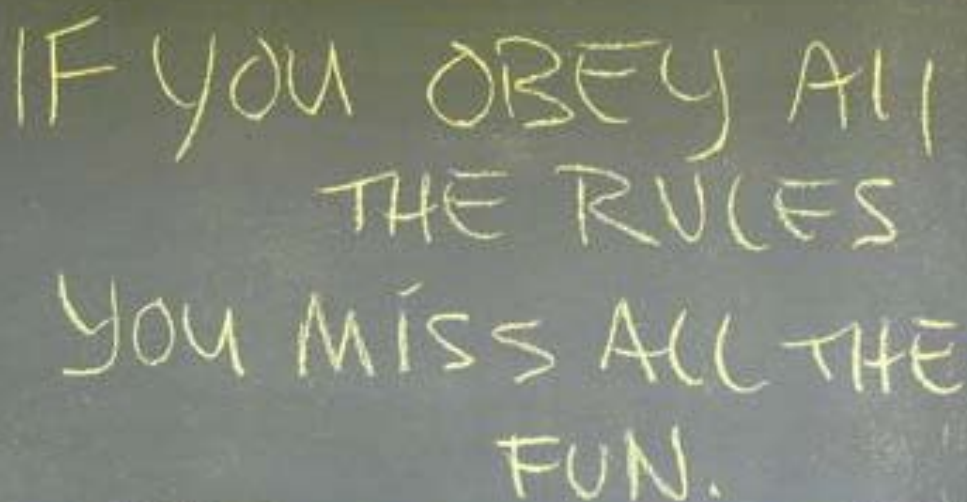 IF YOU OBEY All
THE RULES
YOU MISS ALL THE
FUN.